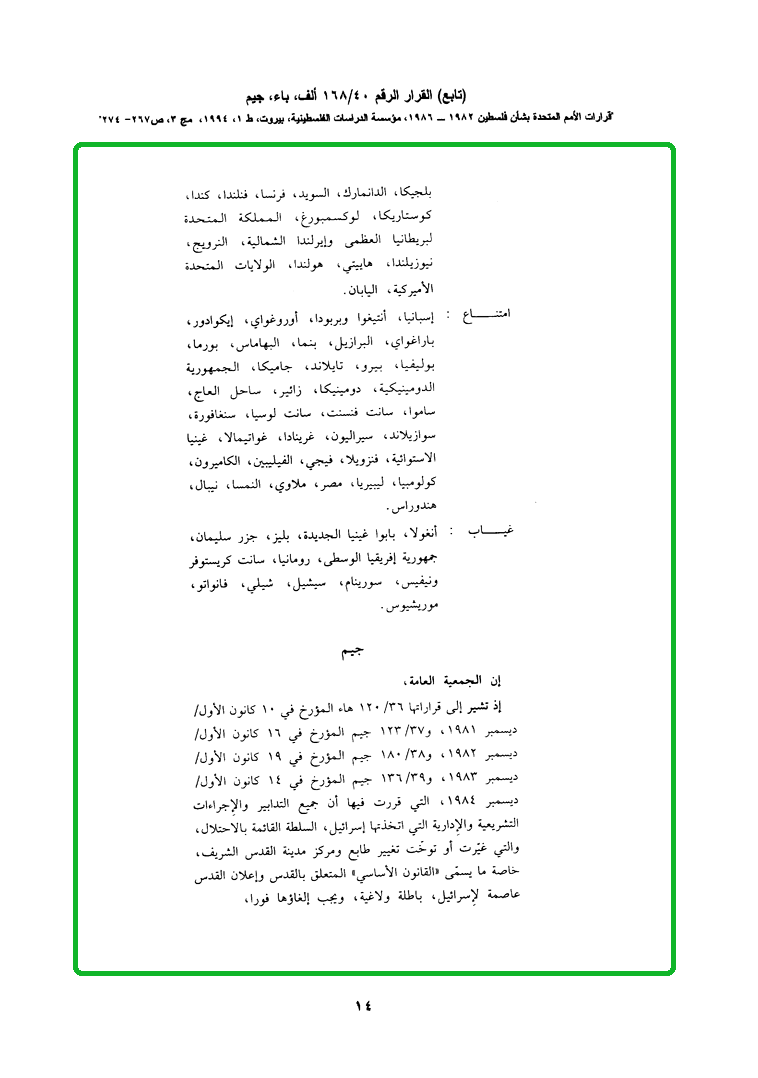 (تابع) القرار الرقم ١٦٨/٤٠ ألف، باء، جيم
"قرارات الأمم المتحدة بشأن فلسطين ١٩٨٢ ــ ١٩٨٦، مؤسسة الدراسات الفلسطينية، بيروت، ط ١، ١٩٩٤، مج ٣، ص٢٦٧- ٢٧٤"
بلجيكا، الدانمارك، السويد، فرنسا، فنلندا، كندا،
كوستاريكا، لوكسمبورغ، المملكة المتحدة
لبريطانيا العظمى وإيرلندا الشمالية، النرويج،
نيوزيلندا، هاييتي، هولندا، الولايات المتحدة
الأميركية، اليابان.
امتنـــــاع : إسبانيا، أنتيغوا وبربودا، أوروغواي، إيكوادور،
باراغواي، البرازيل، بنما، البهاماس، بورما،
بوليفيا، بيرو، تايلاند، جاميكا، الجمهورية
الدومينيكية، دومينيكا، زائير، ساحل العاج،
ساموا، سانت فنسنت، سانت لوسيا، سنغافورة،
سوازيلاند، سيراليون، غرينادا، غواتيمالا، غينيا
الاستوائية، فنزويلا، فيجي، الفيليبين، الكاميرون،
كولومبيا، ليبيريا، مصر، ملاوي، النمسا، نيبال،
هندوراس.
غيـــــاب : أنغولا، بابوا غينيا الجديدة، بليز، جزر سليمان،
جمهورية إفريقيا الوسطى، رومانيا، سانت كريستوفر
ونيفيس، سورينام، سيشيل، شيلي، فانواتو،
موريشيوس.
جيم
إن الجمعية العامة،
إذ تشير إلى قراراتها ١٢٠/٣٦ هاء المؤرخ في ١٠ كانون الأول/
ديسمبر ١٩٨١، و١٢٣/٣٧ جيم المؤرخ في ١٦ كانون الأول/
ديسمبر ١٩٨٢، و١٨٠/٣٨ جيم المؤرخ في ١٩ كانون الأول/
ديسمبر ١٩٨٣، و١٣٦/٣٩ جيم المؤرخ في ١٤ كانون الأول/
ديسمبر ١٩٨٤، التي قررت فيها أن جميع التدابير والإجراءات
التشريعية والإدارية التي اتخذتها إسرائيل، السلطة القائمة بالاحتلال،
والتي غيّرت أو توخّت تغيير طابع ومركز مدينة القدس الشريف،
خاصة ما يسمّى «القانون الأساسي» المتعلق بالقدس وإعلان القدس
عاصمة لإسرائيل، باطلة ولاغية، ويجب إلغاؤها فورا،
١٤